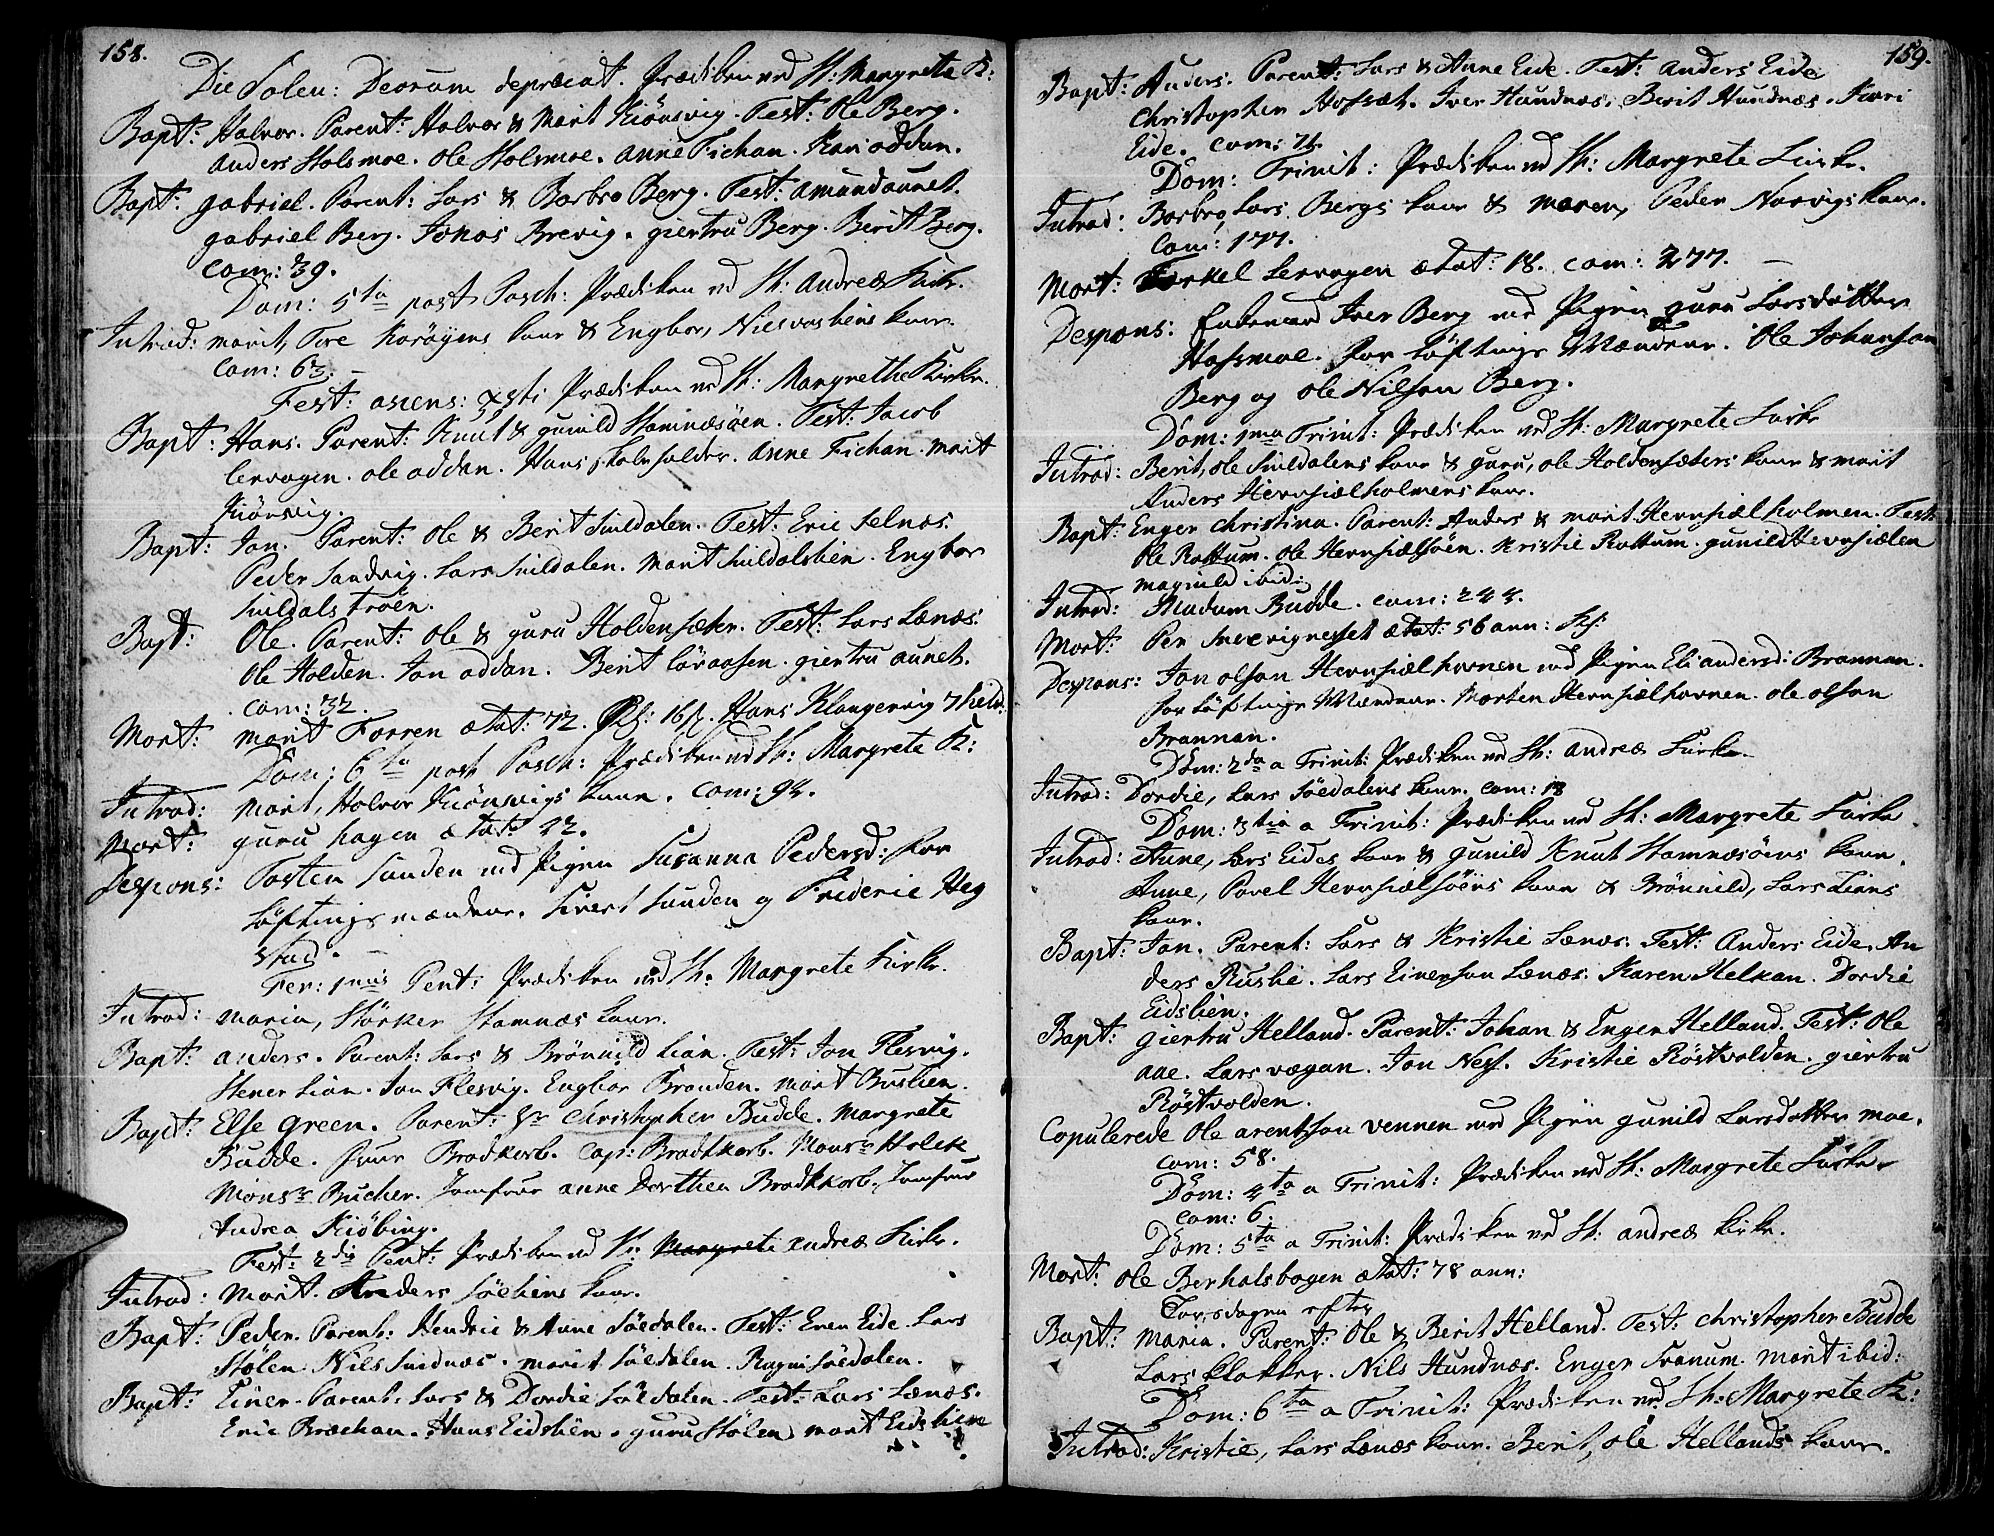 158.
Die Solen: Deorum depræcat. Prædiken ved St: Margreta K:
Bapt: Halvor. Parent: Halvor & Marit Kiönsvig. Test: Ole Berg.
Anders Holsmoe. Ole Holsmoe. Anne Fichan. Kari oddan.
Bapt: gabriel. Parent: Lars & Barbro Berg. Test: Amund aunet.
gabriel Berg. Jonas Brevig. giertru Berg. Berit Berg.
Com: 39.
Dom: 5ta post Pasch: Prædiken ved St: Andreæ Kirke.
Introd: marit, Tore Koröyens kone & Engbor, Niels kone.
Com: 63.
Fest: ascens: Xsti Prædiken ved St: Margrethe Kirke.
Bapt: Hans. Parent: Knut & gunild Stamnæsöen. Test: Jacob
Lervogen. ole oddan. Hans skoleholder. Anne Fichan. Marit
Kiönsvig.
Bapt: Jon. Parent: Ole & Berit Suuldalen. Test: Eric Selnæs.
Peder Sandvig. Lars Suuldalen. Marit Suuldalslien. Engbor
Suuldalstroen.
Bapt: Ole. Parent: Ole & guru Holdensæter. Test: Lars Lænæs.
Ole Holden. Jon oddan. Berit Löraasen. giertru aunet.
Com: 32.
Mort: marit Forren ætat: 72. Hans Klangervig
Dom: 6ta post Pasch: Prædiken ved St: Margrete K:
Introd: Marit, Halvor Kiönsvigs kone. Com: 94.
Mort: guru hagen ætat: 22.
Despons: Tosten Sunden med Pigen Susanna Pedersd: for
löftings mændene. Sivert Sunden og Frideric Heg
stad.
Fer: 1mus Pent: Prædiken ved St: Margrete Kirke.
Introd: Maria, Störker Stamnæs kone.
Bapt: anders. Parent: Lars & Brönnild Lian. Test: Jon Flesvig.
Stener Lian. Jon Flesvig. Engbor Branden. Marit Buslien.
Bapt: Else green. Parent: Hr Christopher Budde. Margrete
Budde. fruer Brodkorb. Cap: Brodtkorb. Monsr Holck
Monsr Bucher. Jomfrue anne Dorthea Brodtkorb. Jomfrue
Andrea Kiöbing.
Fest: 2da Pent: Prædiken ved St: Margrete Andreæ Kirke.
Introd: Marit. Anders Söeliens kone.
Bapt: Peder. Parent: Hendric & Anne Söedalen. Test: Even Eide. Lars
Stölen. Nils Sundnæs. Marit Söedalen. Ragni Söedalen.
Bapt: Einer. Parent: Lars & Dordie Söedalen. Test: Lars Lænæs.
Eric Bræchan. Hans Eidslien. guru Stölen Marit Eidslien
159.
Bapt: Anders. Parent: Lars & Anne Eide. Test: Anders Eide
Christopher Hofsæt. Iver Hundnæs. Berit Hundnæs. Kari
Eide. Com: 71.
Dom: Trinit: Prædiken ved St: Margrete Kirke.
Introd: Barbro, Lars Bergs kone & Maren, Peder Norvigs kone.
Com: 177.
Mort: Torkel Lervogen ætat: 18. Com: 277.
Despons: Enkemand Iver Berg med Pigen guru Larsdatter
Hassmoe. for löftings Mændene. Ole Johansøn
Berg og ole Nilsøn Berg.
Dom: 1ma Trinit: Prædiken ved St: Margrete Kirke
Introd: Berit, ole Suuldalens kone & guru, ole Holdensæters kone & Marit
Anders Hevnsiælholmens kone.
Bapt: Enger Christina. Parent: Anders & marit Hevnsiælholmen. Test:
Ole Rottum. Ole Hevnsiælsöen. Kristie Rottum. gunild Hevnsiælen
magnild ibid:
Introd: Madam Budde. Com: 244.
Mort: Per ætat: 56 ann:
Despons: Jon olson Hevnsiælhovnen med Pigen Eli andersd: Brannan.
for löftings Mændene. Morten Hevnsiælhovnen. Ole olson
Brannan.
Dom: 2da a Trinit: Prædiken ved St: Andreæ Kirke.
Introd: Dordie, Lars Söedalens kone. Com: 18
Dom: 3tia a Trinit: Prædiken ved St: Margrete Kirke.
Introd: Anne, Lars Eides kone & gunild Knut Stamnæsöens kone.
Anne, Povel Hevnsiælsöens kone & Brönnild, Lars Lians
kone.
Bapt: Jon. Parent: Lars & Kristie Lænæs. Test: Anders Eide. An
ders Ruslie. Lars Einerson Lænæs. Karen Helkan. Dordie
Eidslien.
Bapt: giertru Helland. Parent: Johan & Enger Helland. Test: Ole
aae. Lars vægan. Jon Ness. Kristie Röstvolden. giertru
Röstvolden.
Copulerede Ole arentson vennen med Pigen gunild Larsdatter moe.
Com: 58.
Dom: 4ta a Trinit: Prædiken ved St: Margrete Kirke.
Com: 6.
Dom: 5ta a Trinit: Prædiken ved St: Andreæ Kirke.
Mort: Ole Berholsbogen ætat: 78 ann:
Torsdagen efter
Bapt: Maria. Parent: Ole & Berit Helland. Test: Christopher Budde
Lars Klokker. Nils Hundnæs. Enger Tranum. Marit ibid:
Dom: 6ta a Trinit: Prædiken ved St: Margrete K:
Introd: Kristie, Lars Lænæs kone. Berit, Ole Hellands kone.